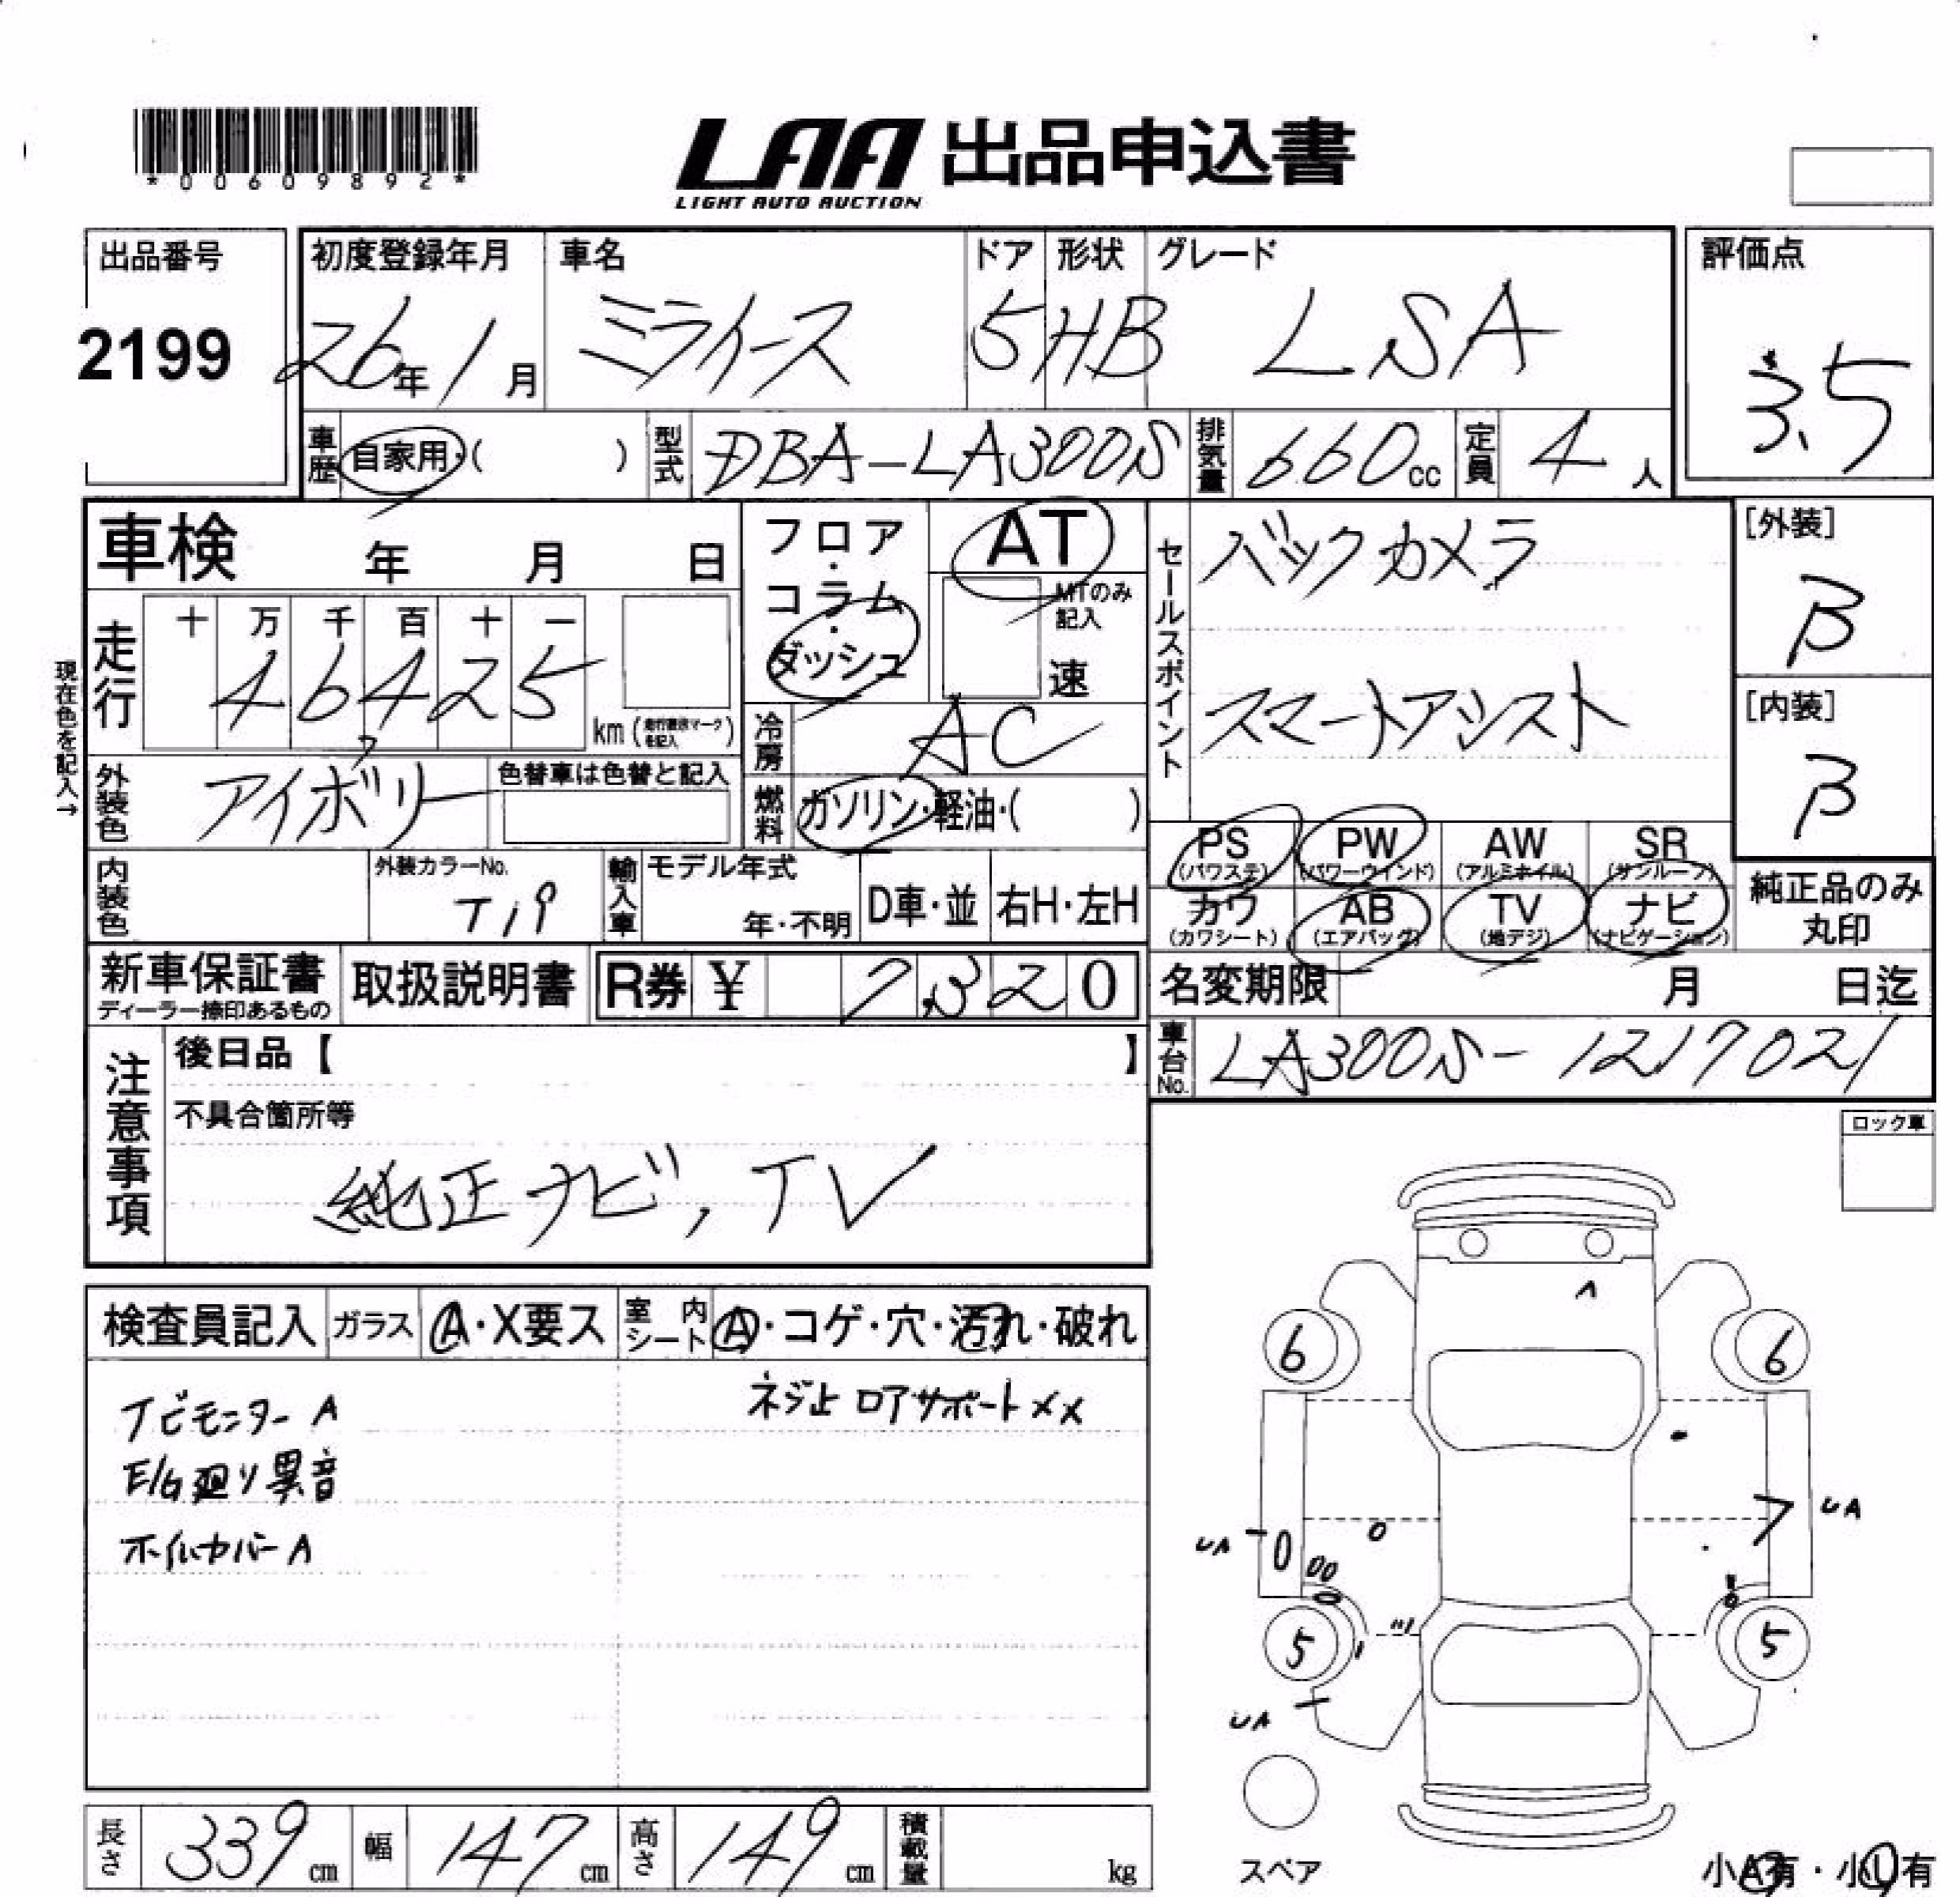 *00609892*
LAA 出品申込書
LIGHT AUTO AUCTION
出品番号
2199
初度登録年月
26年 1月
車名
ミライース
ドア
5
形状
HB
グレード
LSA
評価点
3.5
車歴 自家用・( )
型式 DBA-LA300S
排気量 660cc
定員 4人
車検 年 月 日
フロア・コラム・ダッシュ
AT
MTのみ記入
速
セールスポイント
バックカメラ
スマートアシスト
[外装]
B
[内装]
B
現在色を記入→
走行
十 万 千 百 十 一
4 6 4 2 5
km
冷房 AC
外装色 アイボリー
色替車は色替と記入
燃料 ガソリン・軽油・( )
PS (パワステ)
PW (パワーウインド)
AW (アルミホイル)
SR (サンルーフ)
カワ (カワシート)
AB (エアバッグ)
TV (地デジ)
ナビ (ナビゲーション)
純正品のみ丸印
内装色
外装カラーNo.
T19
輸入車
モデル年式
年・不明
D車・並
右H・左H
新車保証書
ディーラー捺印あるもの
取扱説明書
R券 ¥ 7320
名変期限 月 日迄
車台No. LA300S-1217021
注意事項
後日品【 】
不具合箇所等
純正ナビ,TV
ロック車
検査員記入
ガラス A・X要ス
室内シート A・コゲ・穴・汚れ・破れ
ナビモニターA
E/G廻り異音
ホイルカバーA
ネジ止 ロアサポートメX
6
6
UA
UA
5
5
UA
スペア
小A有・小U有
長さ 339cm
幅 147cm
高さ 149cm
積載量 kg